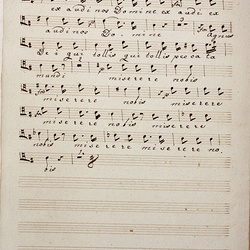 ex audi nos Domine ex audi ex
audi nos Do. mine agnus
De i qui tollis qui tollis pec ca ta
mundi miserere nobis
miserere nobis miserere
nobis miserere nobis
miserere miserere no,
bis